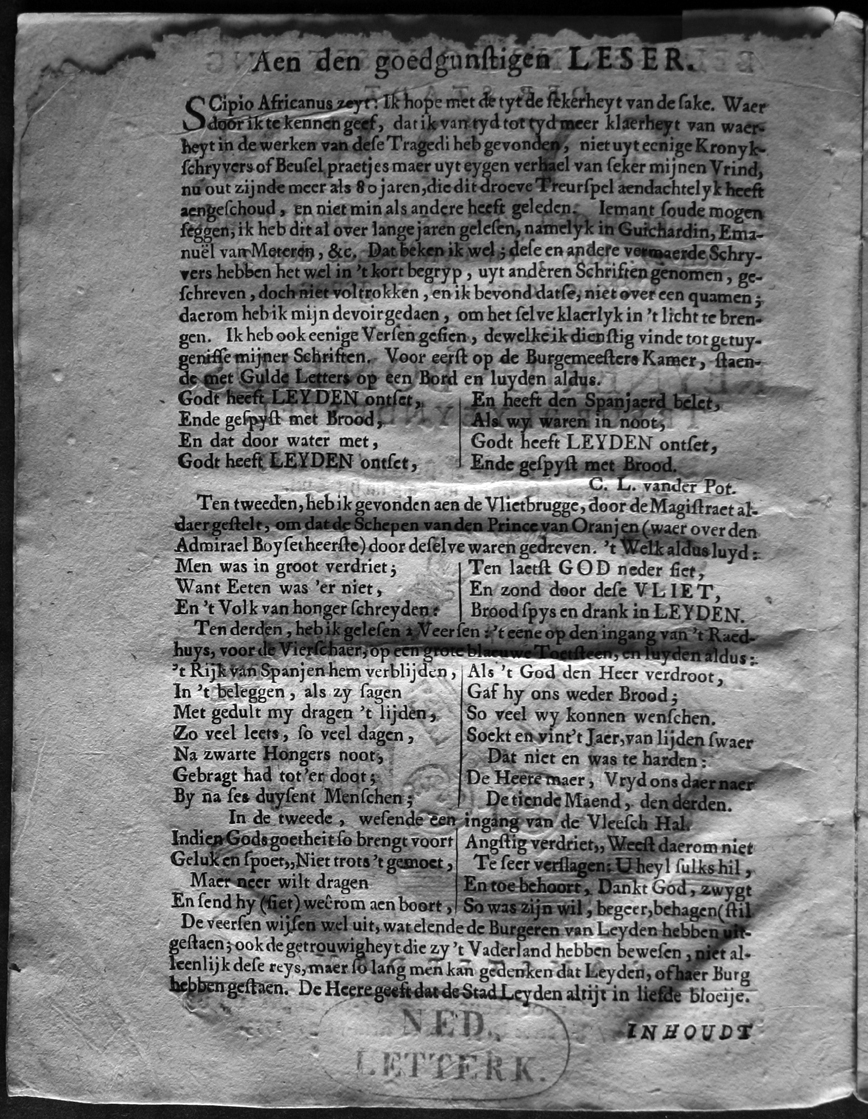 Aen den goedgunſtigen LESER.
SCipio Africanus zeyt: Ik hope met de tyt de ſekerheyt van de ſake. Waer
door ik te kennen geef, dat ik van tyd tot tyd meer klaerheyt van waer-
heyt in de werken van deſe Tragedi heb gevonden, niet uyt eenige Kronyk-
ſchryvers of Beuſel praetjes maer uyt eygen verhael van ſeker mijnen Vrind,
nu out zijnde meer als 80 jaren, die dit droeve Treurſpel aendachtelyk heeft
aengeſchoud, en niet min als andere heeft geleden. Iemant ſoude mogen
ſeggen, ik heb dit al over lange jaren geleſen, namelyk in Guichardin, Ema-
nuël van Meteren, &c. Dat beken ik wel; deſe en andere vermaerde Schry-
vers hebben het wel in 't kort begryp, uyt andêren Schriften genomen, ge-
ſchreven, doch niet voltrokken, en ik bevond datſe, niet over een quamen;
daerom heb ik mijn devoir gedaen, om het ſelve klaerlyk in 't licht te bren-
gen. Ik heb ook eenige Verſen geſien, dewelke ik dienſtig vinde tot getuy-
geniſſe mijner Schriften. Voor eerſt op de Burgemeeſters Kamer, ſtaen-
de met Gulde Letters op een Bord en luyden aldus.
Godt heeft LEYDEN ontſet,
Ende geſpyſt met Brood,
En dat door water met,
Godt heeft LEYDEN ontſet,
En heeft den Spanjaerd belet,
Als wy waren in noot,
Godt heeft LEYDEN ontſet,
Ende geſpyſt met Brood.
C. L. vander Pot.
Ten tweeden, heb ik gevonden aen de Vlietbrugge, door de Magiſtraet al-
daer geſtelt, om dat de Schepen van den Prince van Oranjen (waer over den
Admirael Boyſet heerſte) door deſelve waren gedreven. 't Welk aldus luyd:
Men was in groot verdriet;
Want Eeten was 'er niet,
En 't Volk van honger ſchreyden:
Ten laetſt GOD neder ſiet,
En zond door deſe VLIET,
Brood ſpys en drank in LEYDEN.
Ten derden, heb ik geleſen 2 Veerſen: 't eene op den ingang van 't Raed-
huys, voor de Vierſchaer, op een grote blaeuwe Toetſteen, en luyden aldus:
't Rijk van Spanjen hem verblijden,
In 't beleggen, als zy ſagen
Met gedult my dragen 't lijden,
Zo veel leets, ſo veel dagen,
Na zwarte Hongers noot,
Gebragt had tot 'er doot;
By na ſes duyſent Menſchen;
Als 't God den Heer verdroot,
Gaf hy ons weder Brood;
So veel wy konnen wenſchen.
Soekt en vint't Jaer, van lijden ſwaer
Dat niet en was te harden:
De Heere maer, Vryd ons daer naer
De tiende Maend, den derden.
In de tweede, weſende een ingang van de Vleeſch Hal.
Indien Gods goetheit ſo brengt voort
Geluk en ſpoet,, Niet trots 't gemoet,
Maer neer wilt dragen
En ſend hy (ſiet) weêrom aen boort,
Angſtig verdriet,, Weeſt daerom niet
Te ſeer verſlagen: U heyl ſulks hil,
En toe behoort, Dankt God, zwygt
So was zijn wil, begeer, behagen (ſtil
De veerſen wijſen wel uit, wat elende de Burgeren van Leyden hebben uit-
geſtaen; ook de getrouwigheyt die zy 't Vaderland hebben beweſen, niet al-
leenlijk deſe reys, maer ſo lang men kan gedenken dat Leyden, of haer Burg
hebben geſtaen. De Heere geeft dat de Stad Leyden altijt in liefde bloeije.
INHOUDT
NED.
LETTERK.